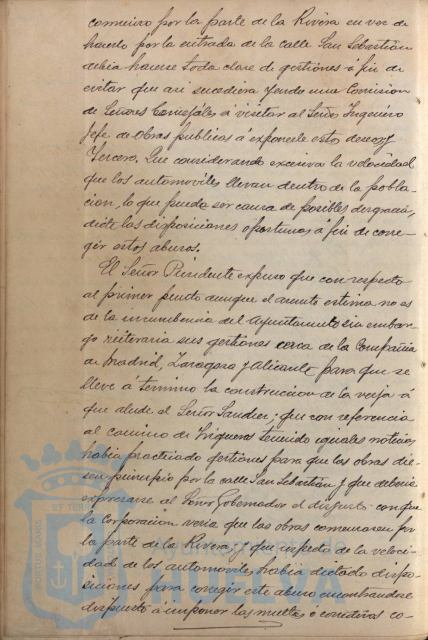 comenzó por la parte de la Rivera en vez de
hacerlo por la entrada de la calle San Sebastián
debía hacerse toda clase de gestiones á fin de
evitar que así sucediera yendo una Comision
de Señores Concejales á visitar al Señor Ingeniero
Jefe de Obras públicas á exponerle estos deseos y
Tercero. Que considerando excesiva la velocidad
que los automóviles llevan dentro de la pobla-
cion, lo que puede ser causa de posibles desgracias,
dicte las disposiciones oportunas á fin de corre-
gir estos abusos.
El Señor Presidente expuso que con respecto
al primer punto aunque el asunto estima no es
de la incumbencia del Ayuntamiento sin embar-
go reiteraria sus gestiones cerca de la Compañia
de Madrid, Zaragoza y Alicante para que se
lleve á término la construccion de la verja á
que alude el Señor ; que con referencia
al camino de Trigueros teniendo iguales noticias
habia practicado gestiones para que las obras die-
sen principio por la calle San Sebastián y que deberia
expresarse al Señor Gobernador el disgusto con que
la Corporacion veria que las obras comenzasen por
la parte de la Rivera; y que respecto de la veloci-
dad de los automóviles habia dictado dispo-
siciones para corregir este abuso encontrandose
dispuesto á imponer las multas ó correctivos co-
PORTUS MARIS ET TERRAE
Ayuntamiento de
HUELVA